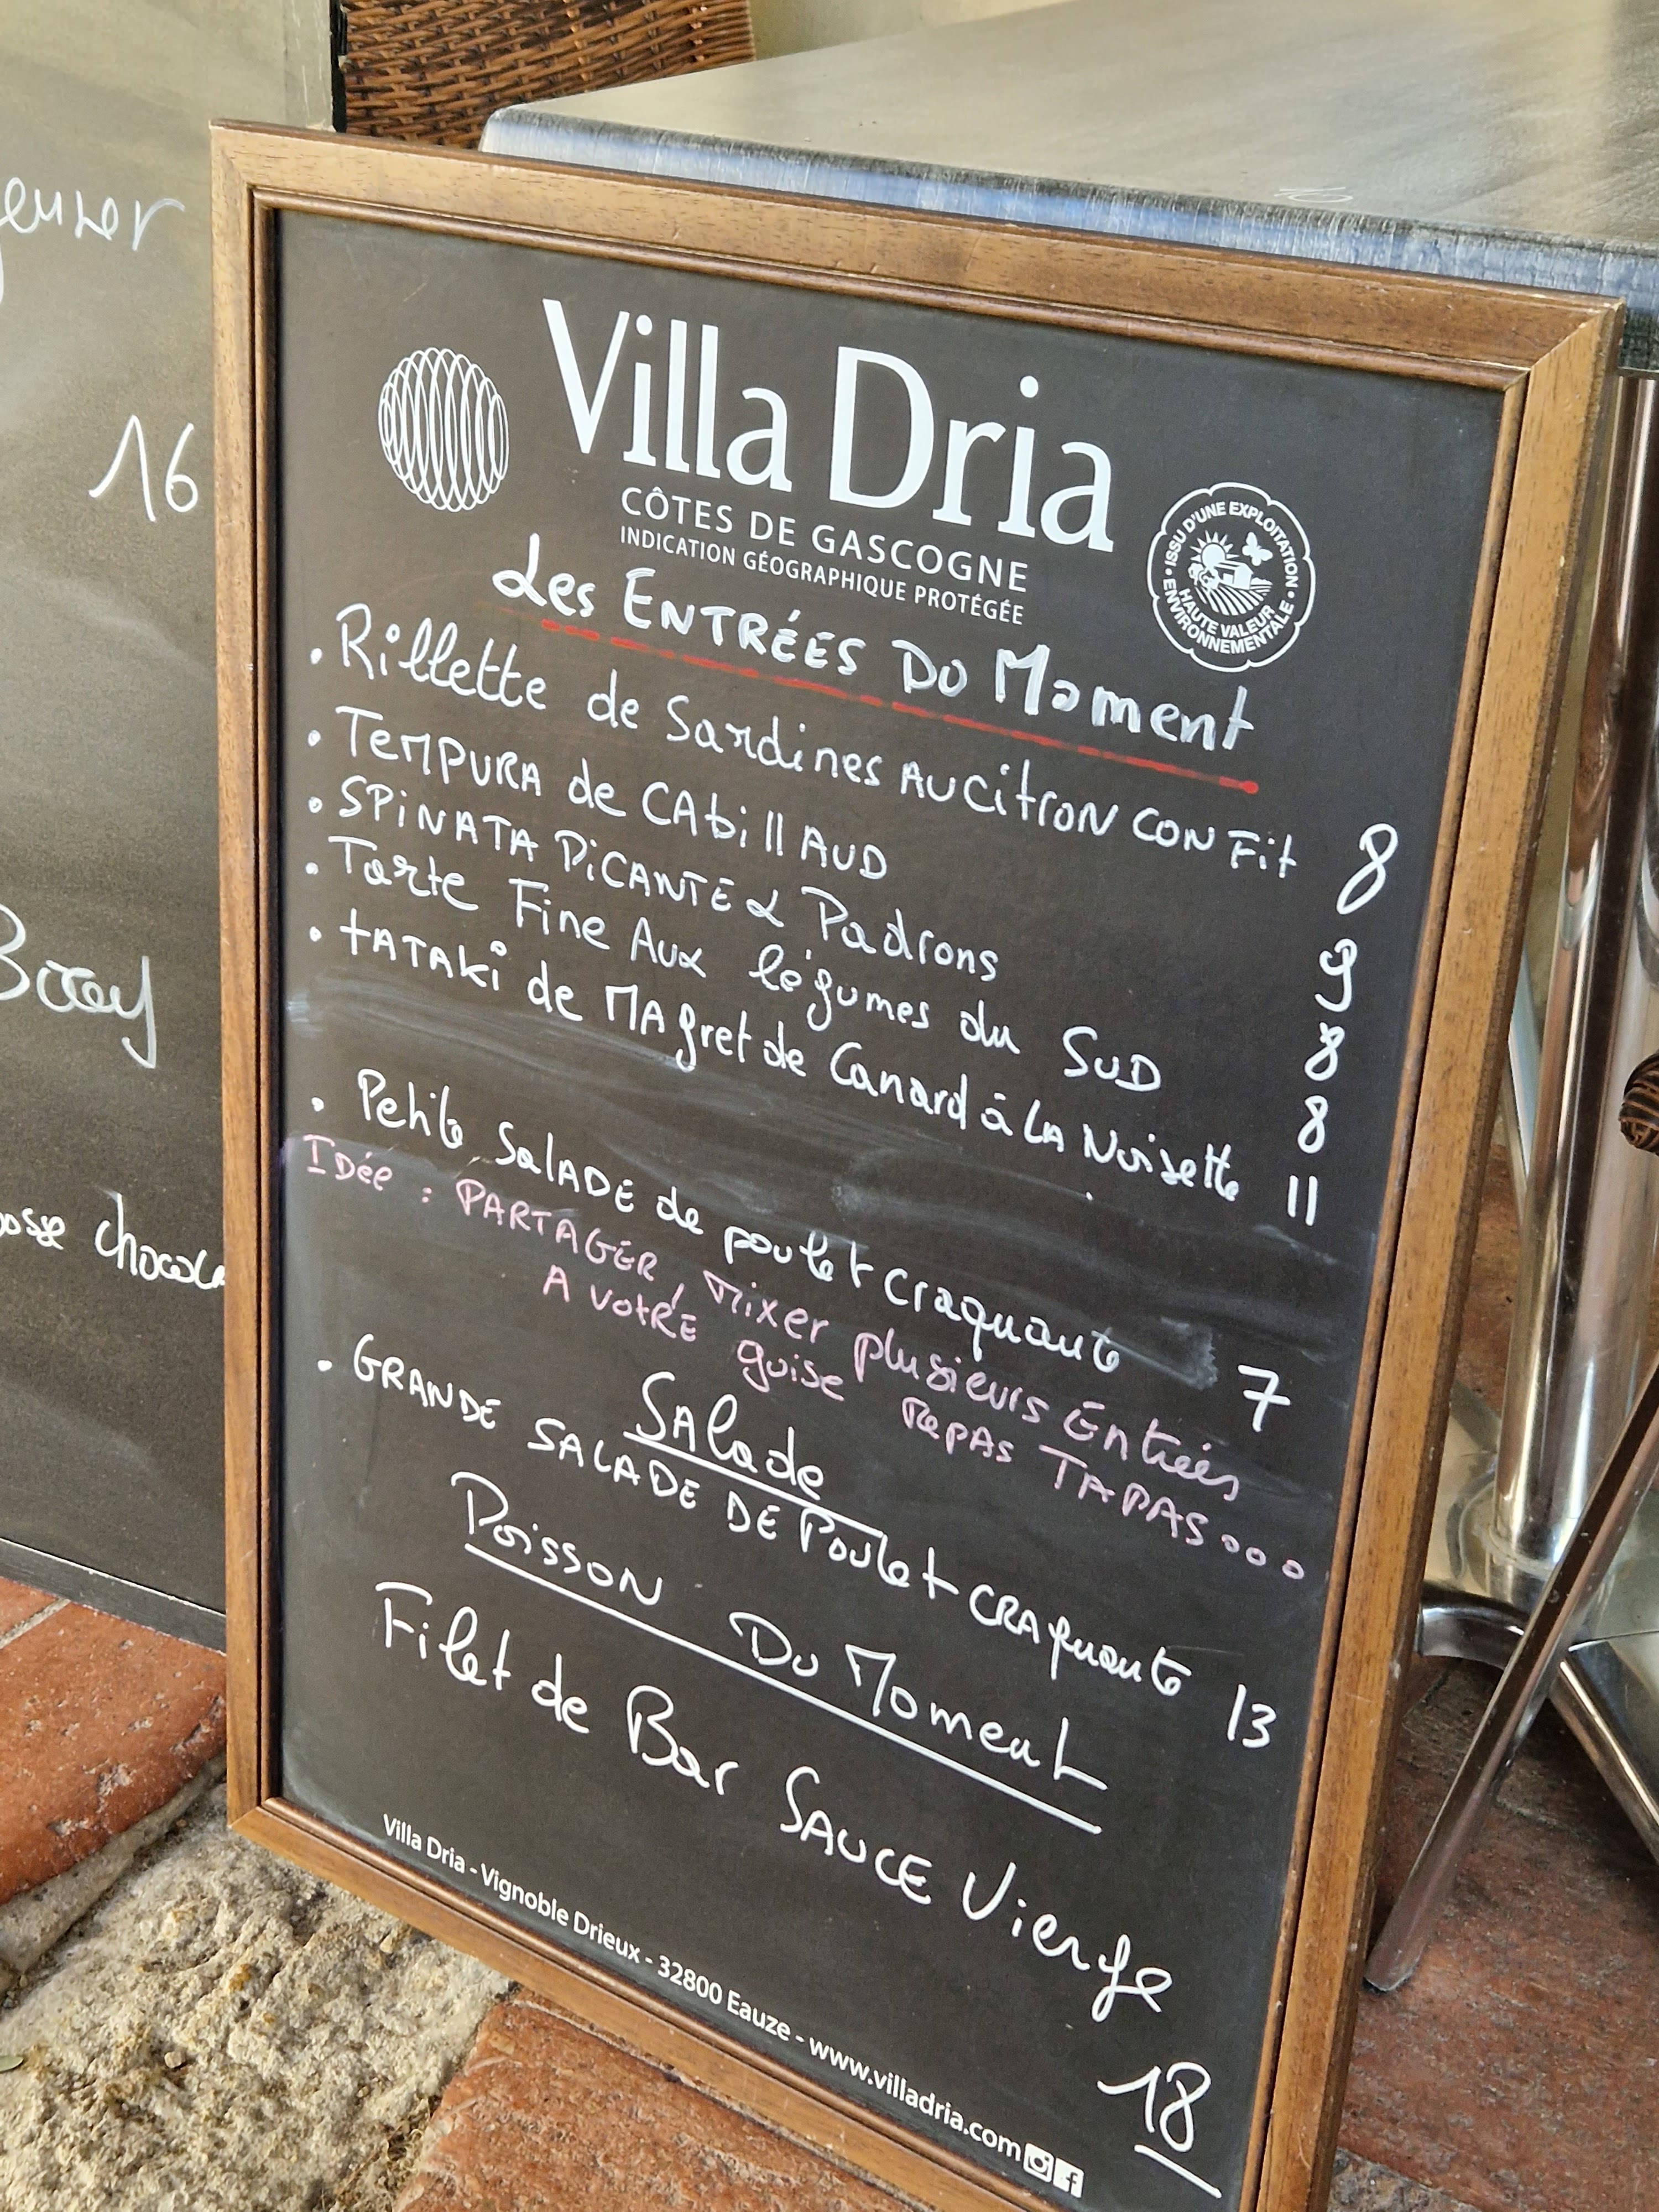 euner
16
Villa Dria
CÔTES DE GASCOGNE
INDICATION GÉOGRAPHIQUE PROTÉGÉE
ISSU D'UNE EXPLOITATION
HAUTE VALEUR
ENVIRONNEMENTALE
Les ENTRÉES DU Moment
. Rillette de Sardines AU CitRON CONFit 8
. TEMPURA de CAbillAUD 9
. SPiNATA PiCANTE & Padrons 8
. Tarte Fine Aux légumes du SUD 8
. tATAKi de MAgret de Canard à LA Noisette 11
. Petite SalADE de poulet craquante 7
IDée : PARTAGER, Mixer plusieurs Entrées
A VOTRE guise RepAs TAPAS...
Salade
. GRANDE SALADE DE Poulet CRAquante 13
Poisson Du Moment
Filet de Bar SAUCE Vierge
18
Villa Dria - Vignoble Drieux - 32800 Eauze - www.villadria.com
osse chocola